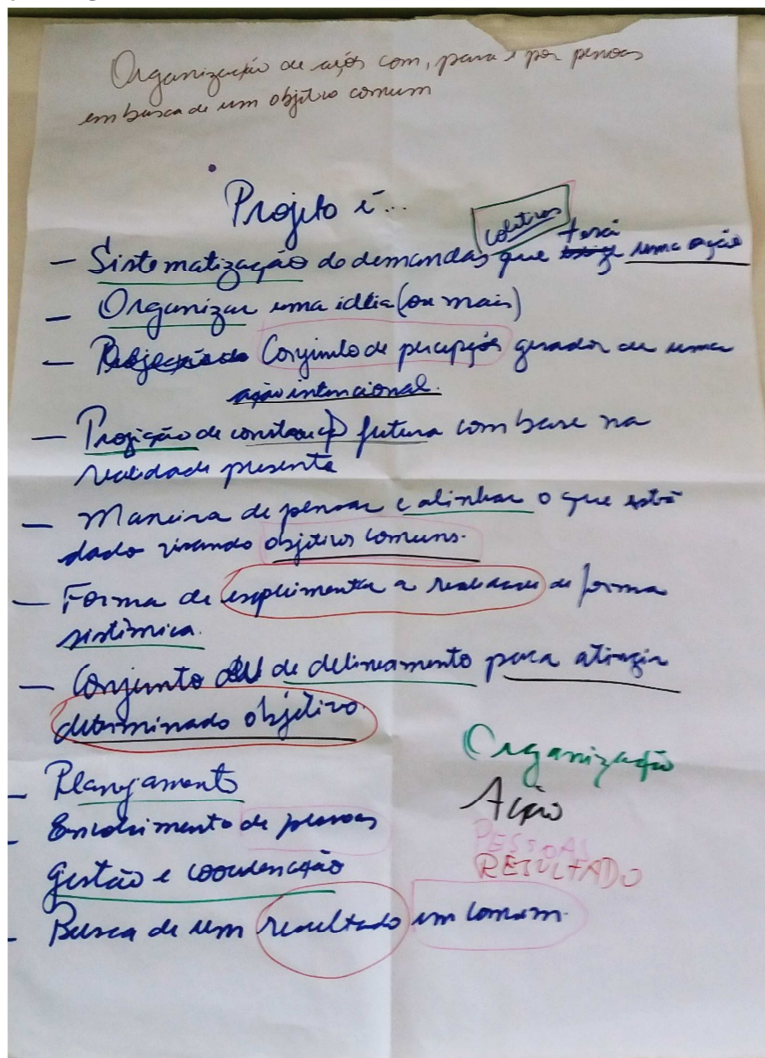 Organização de ações com, para e por pessoas
em busca de um objetivo comum
Projeto é...
coletivas
— Sistematização de demandas que terá uma ação
— Organizar uma idéia (ou mais)
— Conjunto de percepções gerador de uma
ação intencional.
— Projeção de construção futura com base na
realidade presente
— Maneira de pensar e alinhar o que está
dado visando objetivos comuns.
— Forma de experimentar a realidade de forma
sistêmica.
— Conjunto de delineamento para atingir
determinado objetivo.
— Planejamento
- Envolvimento de pessoas
gestão e coordenação
- Busca de um resultado em comum.
Organização
Ação
PESSOAS
RESULTADO